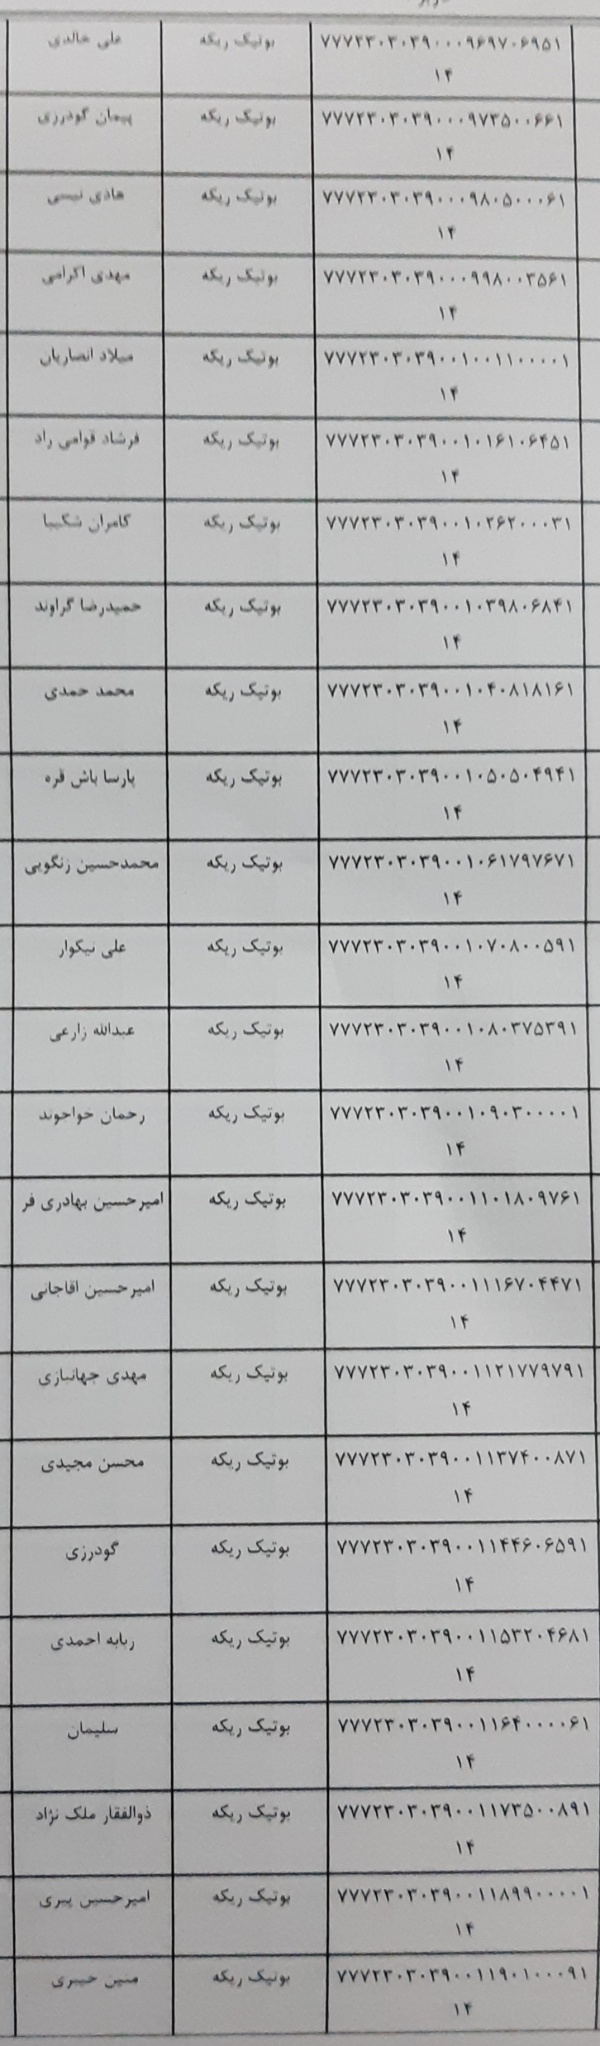 ۷۷۷۲۳۰۳۰۳۹۰۰۰۹۶۹۷۰۶۹۵۱ بوتیک ریکه علی خالدی
۱۴
۷۷۷۲۳۰۳۰۳۹۰۰۰۹۷۳۵۰۰۶۶۱ بوتیک ریکه پیمان گودرزی
۱۴
۷۷۷۲۳۰۳۰۳۹۰۰۰۹۸۰۵۰۰۰۶۱ بوتیک ریکه هادی نیسی
۱۴
۷۷۷۲۳۰۳۰۳۹۰۰۰۹۹۸۰۰۳۵۶۱ بوتیک ریکه مهدی اکرامی
۱۴
۷۷۷۲۳۰۳۰۳۹۰۰۱۰۰۱۱۰۰۰۰۱ بوتیک ریکه میلاد انصاریان
۱۴
۷۷۷۲۳۰۳۰۳۹۰۰۱۰۱۶۱۰۶۴۵۱ بوتیک ریکه فرشاد قوامی راد
۱۴
۷۷۷۲۳۰۳۰۳۹۰۰۱۰۲۶۲۰۰۰۳۱ بوتیک ریکه کامران شکیبا
۱۴
۷۷۷۲۳۰۳۰۳۹۰۰۱۰۳۹۸۰۶۸۴۱ بوتیک ریکه حمیدرضا گراوند
۱۴
۷۷۷۲۳۰۳۰۳۹۰۰۱۰۴۰۸۱۸۱۶۱ بوتیک ریکه محمد حمدی
۱۴
۷۷۷۲۳۰۳۰۳۹۰۰۱۰۵۰۵۰۴۹۴۱ بوتیک ریکه پارسا باش قره
۱۴
۷۷۷۲۳۰۳۰۳۹۰۰۱۰۶۱۷۹۷۶۷۱ بوتیک ریکه محمدحسین زنگویی
۱۴
۷۷۷۲۳۰۳۰۳۹۰۰۱۰۷۰۸۰۰۵۹۱ بوتیک ریکه علی نیکوار
۱۴
۷۷۷۲۳۰۳۰۳۹۰۰۱۰۸۰۳۷۵۳۹۱ بوتیک ریکه عبدالله زارعی
۱۴
۷۷۷۲۳۰۳۰۳۹۰۰۱۰۹۰۳۰۰۰۰۱ بوتیک ریکه رحمان خواجوند
۱۴
۷۷۷۲۳۰۳۰۳۹۰۰۱۱۰۱۸۰۹۷۶۱ بوتیک ریکه امیرحسین بهادری فر
۱۴
۷۷۷۲۳۰۳۰۳۹۰۰۱۱۱۶۷۰۴۴۷۱ بوتیک ریکه امیرحسین اقاجانی
۱۴
۷۷۷۲۳۰۳۰۳۹۰۰۱۱۲۱۷۷۹۷۹۱ بوتیک ریکه مهدی جهانبازی
۱۴
۷۷۷۲۳۰۳۰۳۹۰۰۱۱۳۷۴۰۰۸۷۱ بوتیک ریکه محسن مجیدی
۱۴
۷۷۷۲۳۰۳۰۳۹۰۰۱۱۴۴۶۰۶۵۹۱ بوتیک ریکه گودرزی
۱۴
۷۷۷۲۳۰۳۰۳۹۰۰۱۱۵۳۲۰۴۶۸۱ بوتیک ریکه ربابه احمدی
۱۴
۷۷۷۲۳۰۳۰۳۹۰۰۱۱۶۴۰۰۰۰۶۱ بوتیک ریکه سلیمان
۱۴
۷۷۷۲۳۰۳۰۳۹۰۰۱۱۷۳۵۰۰۸۹۱ بوتیک ریکه ذوالفقار ملک نژاد
۱۴
۷۷۷۲۳۰۳۰۳۹۰۰۱۱۸۹۹۰۰۰۰۱ بوتیک ریکه امیرحسین پیری
۱۴
۷۷۷۲۳۰۳۰۳۹۰۰۱۱۹۰۱۰۰۰۹۱ بوتیک ریکه
۱۴